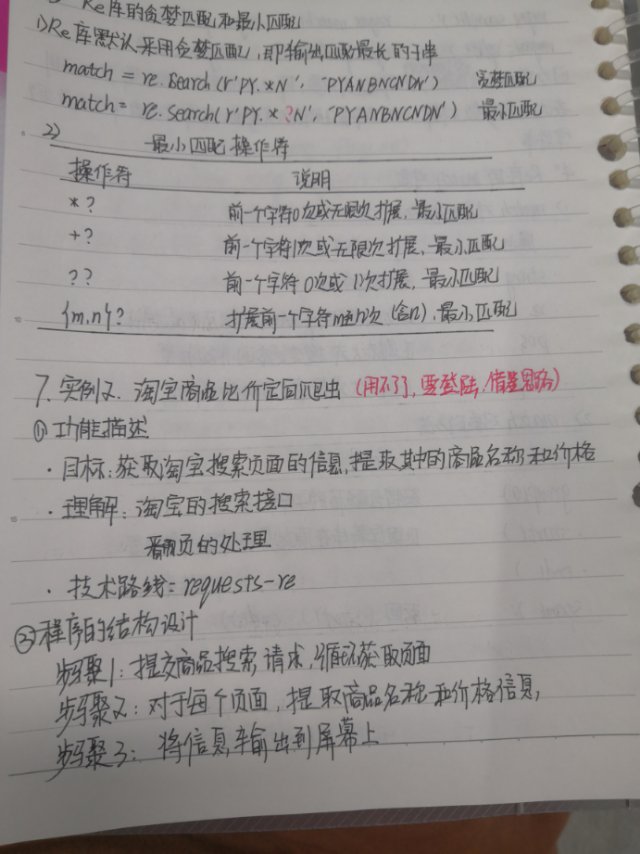 Re库的贪婪匹配和最小匹配
1) Re库默认采用贪婪匹配,即输出匹配最长的子串
match = re.search(r'PY.*N', 'PYANBNCNDN') 贪婪匹配
match= re.search(r'PY.*?N', 'PYANBNCNDN') 最小匹配
2)
最小匹配操作符
操作符 说明
*? 前一个字符0次或无限次扩展,最小匹配
+? 前一个字符1次或无限次扩展,最小匹配
?? 前一个字符0次或1次扩展,最小匹配
{m,n}? 扩展前一个字符m至n次(含n),最小匹配
7. 实例2. 淘宝商品比价定向爬虫 (用不了,要登陆,借鉴思路)
① 功能描述
· 目标:获取淘宝搜索页面的信息,提取其中的商品名称和价格
· 理解:淘宝的搜索接口
翻页的处理
· 技术路线:requests-re
② 程序的结构设计
步骤1:提交商品搜索请求,循环获取页面
步骤2:对于每个页面,提取商品名称和价格信息,
步骤3:将信息输出到屏幕上